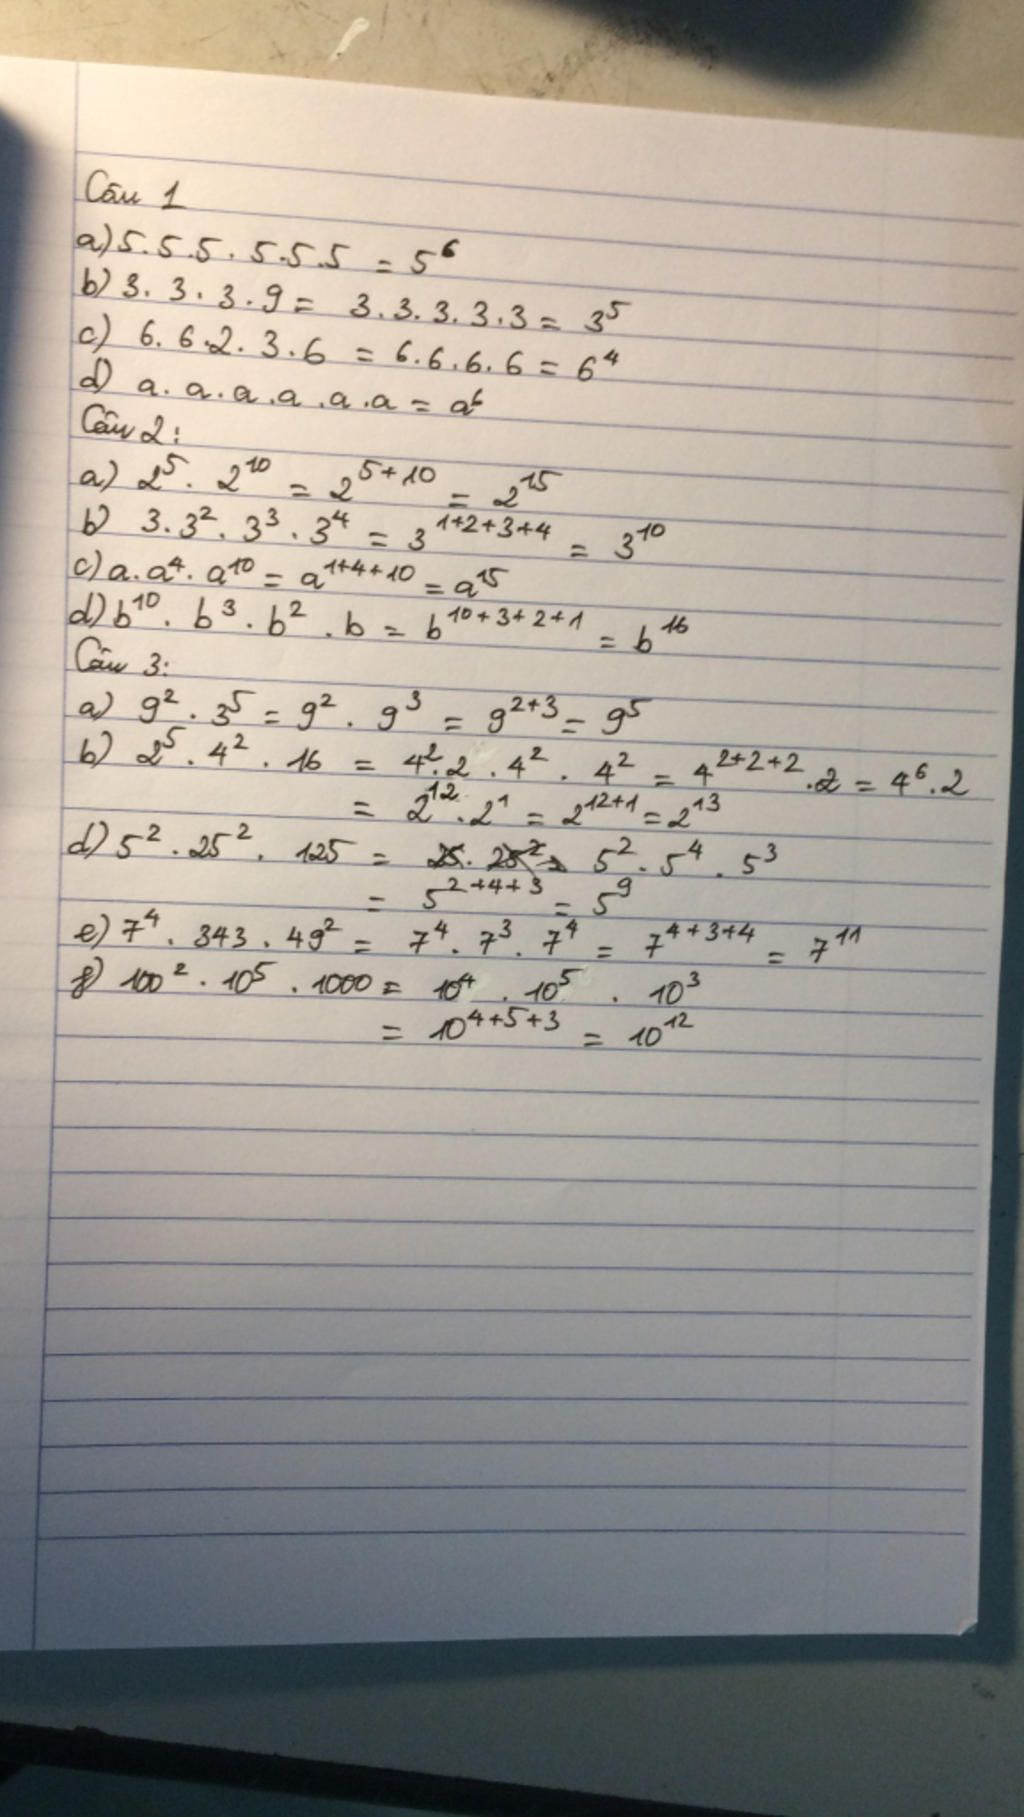 Câu 1
a) 5.5.5.5.5.5 = 5⁶
b) 3.3.3.9 = 3.3.3.3.3 = 3⁵
c) 6.6.2.3.6 = 6.6.6.6 = 6⁴
d) a.a.a.a.a.a = a⁶
Câu 2:
a) 2⁵.2¹⁰ = 2⁵⁺¹⁰ = 2¹⁵
b) 3.3².3³.3⁴ = 3¹⁺²⁺³⁺⁴ = 3¹⁰
c) a.a⁴.a¹⁰ = a¹⁺⁴⁺¹⁰ = a¹⁵
d) b¹⁰.b³.b².b = b¹⁰⁺³⁺²⁺¹ = b¹⁶
Câu 3:
a) 9².3⁵ = 9².9³ = 9²⁺³ = 9⁵
b) 2⁵.4².16 = 4².2.4².4² = 4²⁺²⁺².2 = 4⁶.2
= 2¹².2¹ = 2¹²⁺¹ = 2¹³
d) 5².25².125 = 5².5⁴.5³
= 5²⁺⁴⁺³ = 5⁹
e) 7⁴.343.49² = 7⁴.7³.7⁴ = 7⁴⁺³⁺⁴ = 7¹¹
f) 100².10⁵.1000 = 10⁴.10⁵.10³
= 10⁴⁺⁵⁺³ = 10¹²